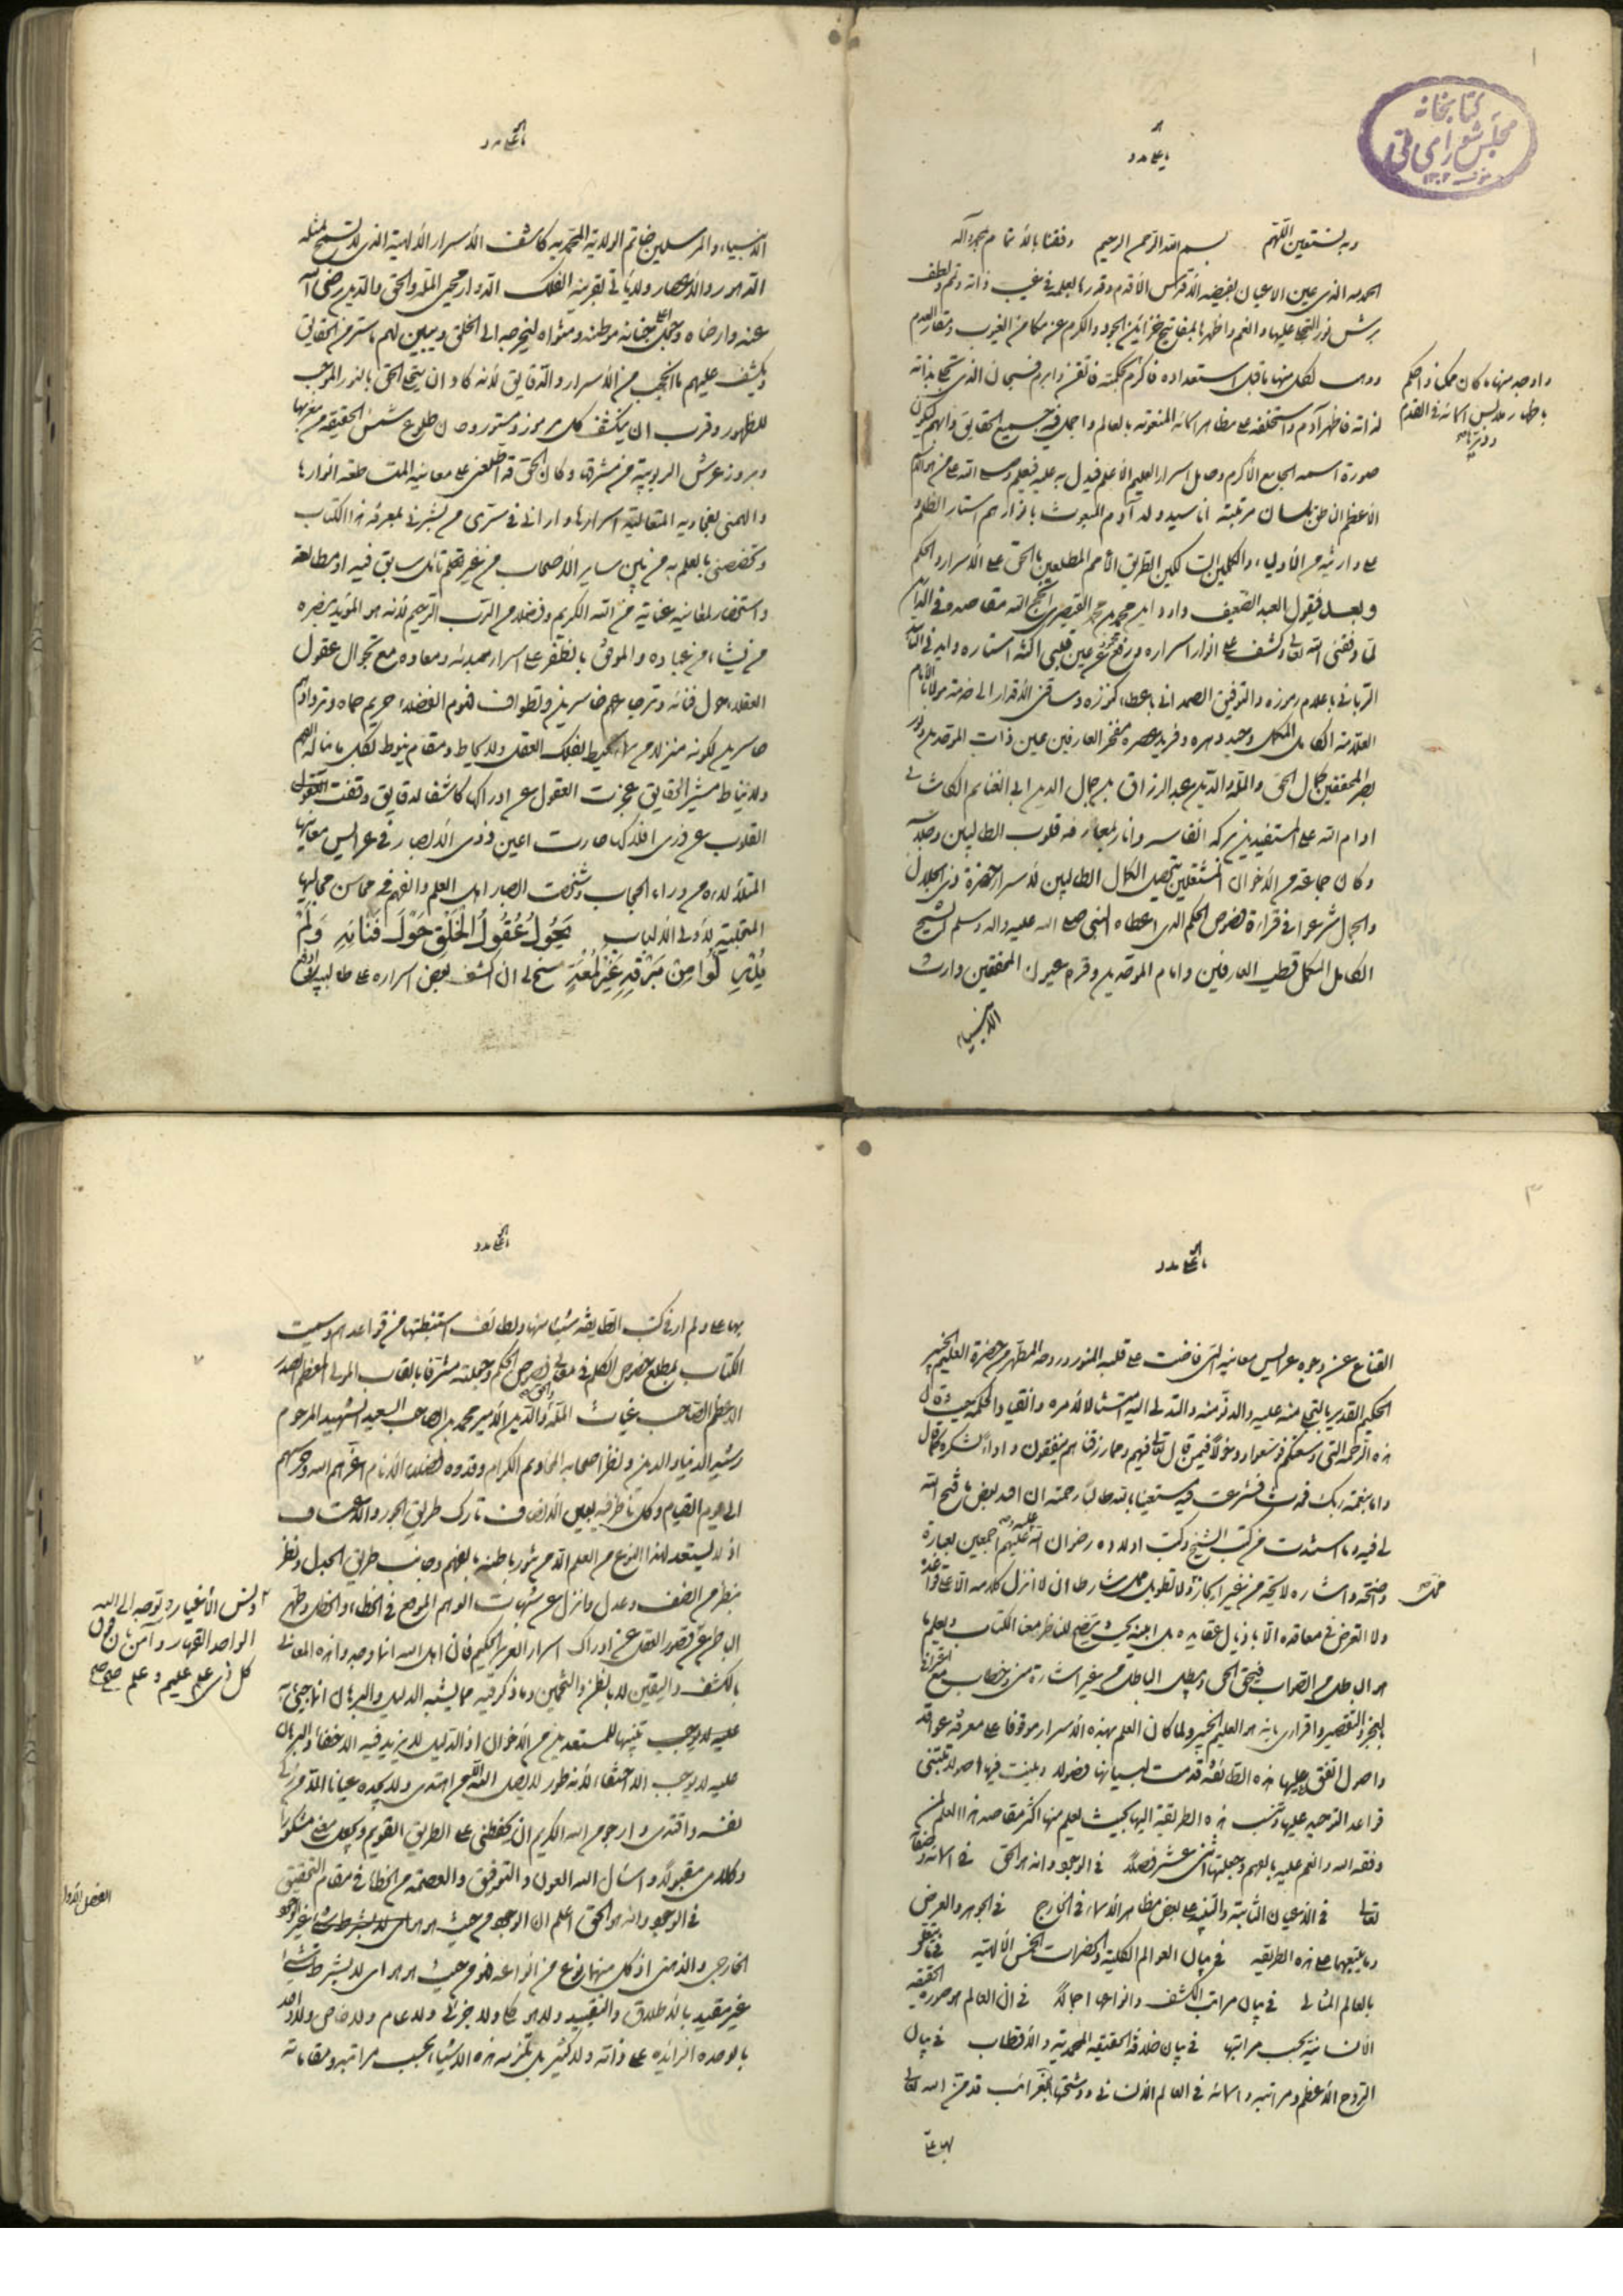 ١
كتابخانه
مجلس شورای ملی
وبه نستعين اللهم بسم الله الرحمن الرحيم وفقنا بالاتمام بمحمد وآله
الحمد لله الذى عين الاعيان بفيضه الاقدس الاقدم وقدرها بعلمه فى غيب ذاته وتمم ولطف
برش نور التجلى عليها وانعم واظهرها بمفاتيح خزاين الجود والكرم عن مكامن الغيوب ومقار العدم
ووهب لكل منها ما قبل استعداده فاكرم بحكمته فاتقن وابرم فسبحان الذى تجلى بذاته
واوجد منها ما كان ممكنا واحكم
باظهار ملابس اسمائه فى القدم
لذاته فاظهر آدم واستخلفه على مظاهر اسمائه المنعوته بالعالم واجمل فيه جميع الحقايق وابهم ليكون
صورة اسمه الجامع الاكرم وحامل اسرار العليم الاعلم فيدل به عليه فيعلم وصلى الله على من هو الاسم
الاعظم الناطق بلسان مرتبته انا سيد ولد آدم المبعوث
على وارثيه من الأولياء والكملين السالكين الطريق الأمم المطلعين بالحق على الأسرار والحكم
وبعد فيقول العبد الضعيف داود ابن محمود بن محمد القيصرى انجح الله مقاصده فى الدارين
لما وفقنى الله تعالى وكشف على انوار اسراره ورفع عن عين قلبى اكنة استاره وايدنى بالتأييد
الربانى باعلام رموزه والتوفيق الصمدانى باعطاء كنوزه وساقنى الأقدار الى خدمة مولانا الامام
العلامة الكامل المكمل وحيد دهره وفريد عصره مفخر العارفين عين ذات الموحدين ونور
بصر المحققين كمال الحق والملة والدين عبد الرزاق بن جمال الدين ابى الغنائم الكاشانى
ادام الله على المستفيدين بركة انفاسه وانار بمعارفه قلوب الطالبين وجلاسه
وكان جماعة من الأخوان المشتغلين بتحصيل الكمال الطالبين لأسرار حضرة ذى الجلال
والجمال شرعوا فى قراءة فصوص الحكم الذى اعطاه النبى صلى الله عليه واله وسلم الشيخ
الكامل المكمل قطب العارفين وامام الموحدين وقرة عيون المحققين وارث
الانبياء
الأنبياء والمرسلين خاتم الولاية المحمدية كاشف الأسرار الالهية الذى لا يسمح بمثله
الدهور والأعصار ولا يأتى بقرينه الفلك الدوار محيى الملة والحق والدين رضى الله
عنه وارضاه وجعل اعلى جنانه موطنه ومثواه ليخرجه الى الخلق ويبين لهم ما ستر من الحقايق
ويكشف عليهم ما انحجب من الأسرار والدقايق لأنه كاد ان يتجلى الحق بالنور الموجب
للظهور وقرب ان ينكشف كل مرموز ومستور وحان طلوع شمس الحقيقة من مغربها
وبروز عرش الربوبية من مشرقها وكان الحق قد اطلعنى على معانيه المتساطعة انوارها
والهمنى بفحاويه المتعالية اسرارها وارانى فى سرى من بشرنى بمعرفة هذا الكتاب
وتخصيصى بالعلم به من بين ساير الأصحاب من غير تعلم سابق فيه او مطالعة
واستحضار لمعانيه عناية من الله الكريم وفضلا من الرب الرحيم لأنه هو المؤيد بنصره
من يشاء من عباده والموفق بالظفر على اسرار مبدئه ومعاده مع تجوال عقول
العقلاء حول فنائه وترجاعهم خاسرين وتطواف فهوم الفضلاء حريم حماه وتردادهم
حاسرين لكونه منزلا من سماء يحيط بفلك العقل ولا يحاط ومقام ينوط بكل ما يناله الفهم
ولا يناط مشيرا الى حقايق عجزت العقول عن ادراكها كاشفا لدقايق وقفت
القلوب عن ذرى افلاكها حارت اعين ذوى الأبصار فى عرايس معانيها
المتلألأة من وراء الحجاب وشخصت ابصار اهل العلم والفهم فى محاسن مجاليها
المتجلية لأولى الألباب يَجُولُ عُقُولُ الْخَلْقِ حَوْلَ فَنَائِهِ وَلَمْ
يُدْرِكُوا مِنْ بَرْقِهِ غَيْرَ لُمْعَةٍ سنح لى ان اكشف بعض اسراره على طالبيه وارفع
٣
القناع عن وجوه عرايس معانيه التى فاضت على قلبه المنور وروحه المطهر من حضرة العليم الخبير
الحكيم القدير بالتجلى منه عليه والدنو منه والتدلى اليه امتثالا لأمره وانقيادا لحكمه حيث قال
هذه الرحمة التى وسعتكم فوسعوا ودخولا فيمن قال تعالى فيهم ومما رزقناهم ينفقون واداءً لشكره كما قال
واما بنعمة ربك فحدث فشرعت فيه مستعينا بالله طالبا رحمته ان اقيد بعض ما فتح الله
لى فيه وما استفدت من كتب الشيخ وكتب اولاده رضوان الله عليهم اجمعين بعبارة
واضحة واشارة لايحة من غير ايجاز مخل ولا تطويل ممل شارطا ان لا انزل كلامه الا على قواعده
ولا اتعرض فى معاقده الا باذيال عقايده بل ابينه بحيث يتضح للناظر معنى الكتاب ويعلم ما
هو الباطل من الصواب فيحق الحق ويبطل الباطل من غير اشارة منى وخطاب مع اعترافى
بالعجز والتقصير واقرارى بانه هو العليم الخبير ولما كان العلم بهذه الأسرار موقوفا على معرفة قواعد
واصول اتفقت عليها هذه الطائفة قدمت لبيانها فصولا وبينت فيها اصولا تبتنى
قواعد التوحيد عليها وتنسب هذه الطريقة اليها بحيث يعلم منها اكثر مقاصد هذا العلم لمن
وفقه الله وانعم عليه بالفهم وجعلتها اثنى عشر فصلاً فى الوجود وانه هو الحق فى اسمائه وصفاته
تعالى فى الأعيان الثابتة والتنبيه على بعض مظاهر الأسماء فى الخارج فى الجوهر والعرض
وما يتبعهما على هذه الطريقة فى بيان العوالم الكلية والحضرات الخمس الالهية فيما يتعلق
بالعالم المثالى فى بيان مراتب الكشف وانواعها اجمالا فى ان العالم هو صورة الحقيقة
الانسانية بحسب مراتبها فى بيان خلافة الحقيقة المحمدية والأقطاب فى بيان
الروح الأعظم ومراتبه واسمائه فى العالم الأنسانى ووشحتها بغرائب قد من الله تعالى
بها على
بها على ولم ار فى كتب الطايفة شيئا منها ولطائف استنبطتها من قواعدهم وسميت
الكتاب بمطلع خصوص الكلم فى معانى فصوص الحكم وجعلته مشرفا بالقاب المولى المعظم الصدر
الاعظم الصاحب غياث الملة والدين الأمير محمد بن الصاحب السعيد الشهيد المرحوم
رشيد الدنيا والدين ونظر اصحابه المخاديم الكرام وقدوة افضل الأنام اعزهم الله وحرسهم
الى يوم القيام وكل ناظر فيه بعين الأنصاف تارك طريق الجور والاعتساف
اذ لا يستعد لهذا النوع من العلم الا من نور باطنه بالفهم وجانب طريق الجدل ونظر
بنظر من انصف وعدل وانعزل عن شبهات الوهم الموقع فى الخطاء والخلل وطهر
الباطن عن قصور العقل عن ادراك اسرار العزيز الحكيم فان اهل الله انما وجدوا هذه المعانى
بالكشف واليقين لا بالظن والتخمين وما ذكر فيه مما يشبه الدليل والبرهان انما جئ به
عليه لا يوجب تنبيها للمستعدين من الأخوان اذ الدليل لا يزيد فيه الا خفاء والبرهان
عليه لا يوجب الا جفاء لأنه طور لا يصل اليه الا من اهتدى ولا يجده عيانا الا من زكى
نفسه واقتدى وارجو من الله الكريم ان يحفظنى على الطريق القويم ويجعل سعيى مشكورا
وكلامى مقبولا واسأل الله العون والتوفيق والعصمة من الخطأ فى مقام التحقيق
الفصل الأول
فى الوجود وانه هو الحق اعلم ان الوجود من حيث هو هو غير الوجود
الخارجى والذهنى اذ كل منهما نوع من انواعه فهو من حيث هو هو اى لا بشرط شئ
غير مقيد بالأطلاق والتقييد ولا هو كلى ولا جزئى ولا عام ولا خاص ولا واحد
بالوحدة الزائدة على ذاته ولا كثير بل تلزمه هذه الأشياء بحسب مراتبه ومقاماته
ونسى الأغيار وتوجه الى الله
الواحد القهار وآمن بان فوق
كل ذى علم عليم وعلم